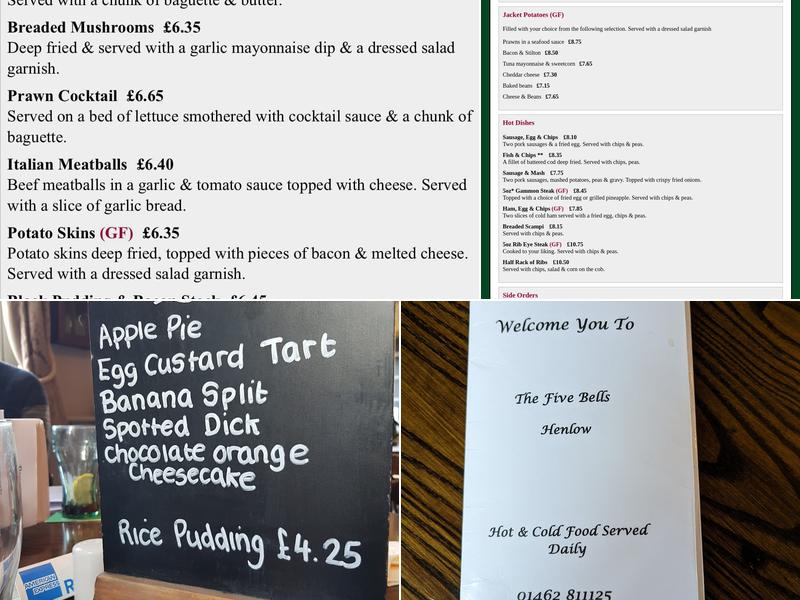 Served with a chunk of baguette & butter.
Breaded Mushrooms £6.35
Deep fried & served with a garlic mayonnaise dip & a dressed salad
garnish.
Prawn Cocktail £6.65
Served on a bed of lettuce smothered with cocktail sauce & a chunk of
baguette.
Italian Meatballs £6.40
Beef meatballs in a garlic & tomato sauce topped with cheese. Served
with a slice of garlic bread.
Potato Skins (GF) £6.35
Potato skins deep fried, topped with pieces of bacon & melted cheese.
Served with a dressed salad garnish.
Black Pudding & Bacon Stack £6.45
Jacket Potatoes (GF)
Filled with your choice from the following selection. Served with a dressed salad garnish
Prawns in a seafood sauce £8.75
Bacon & Stilton £8.50
Tuna mayonnaise & sweetcorn £7.65
Cheddar cheese £7.30
Baked beans £7.15
Cheese & Beans £7.65
Hot Dishes
Sausage, Egg & Chips £8.10
Two pork sausages & a fried egg. Served with chips & peas.
Fish & Chips ** £8.35
A fillet of battered cod deep fried. Served with chips, peas.
Sausage & Mash £7.75
Two pork sausages, mashed potatoes, peas & gravy. Topped with crispy fried onions.
5oz* Gammon Steak (GF) £8.45
Topped with a choice of fried egg or grilled pineapple. Served with chips & peas.
Ham, Egg & Chips (GF) £7.85
Two slices of cold ham served with a fried egg, chips & peas.
Breaded Scampi £8.15
Served with chips & peas.
5oz Rib Eye Steak (GF) £10.75
Cooked to your liking. Served with chips & peas.
Half Rack of Ribs £10.50
Served with chips, salad & corn on the cob.
Side Orders
Apple Pie
Egg Custard Tart
Banana Split
Spotted Dick
Chocolate orange
Cheesecake
Rice Pudding £4.25
AMERICAN
EXPRESS
R
Welcome You To
The Five Bells
Henlow
Hot & Cold Food Served
Daily
01462 811125